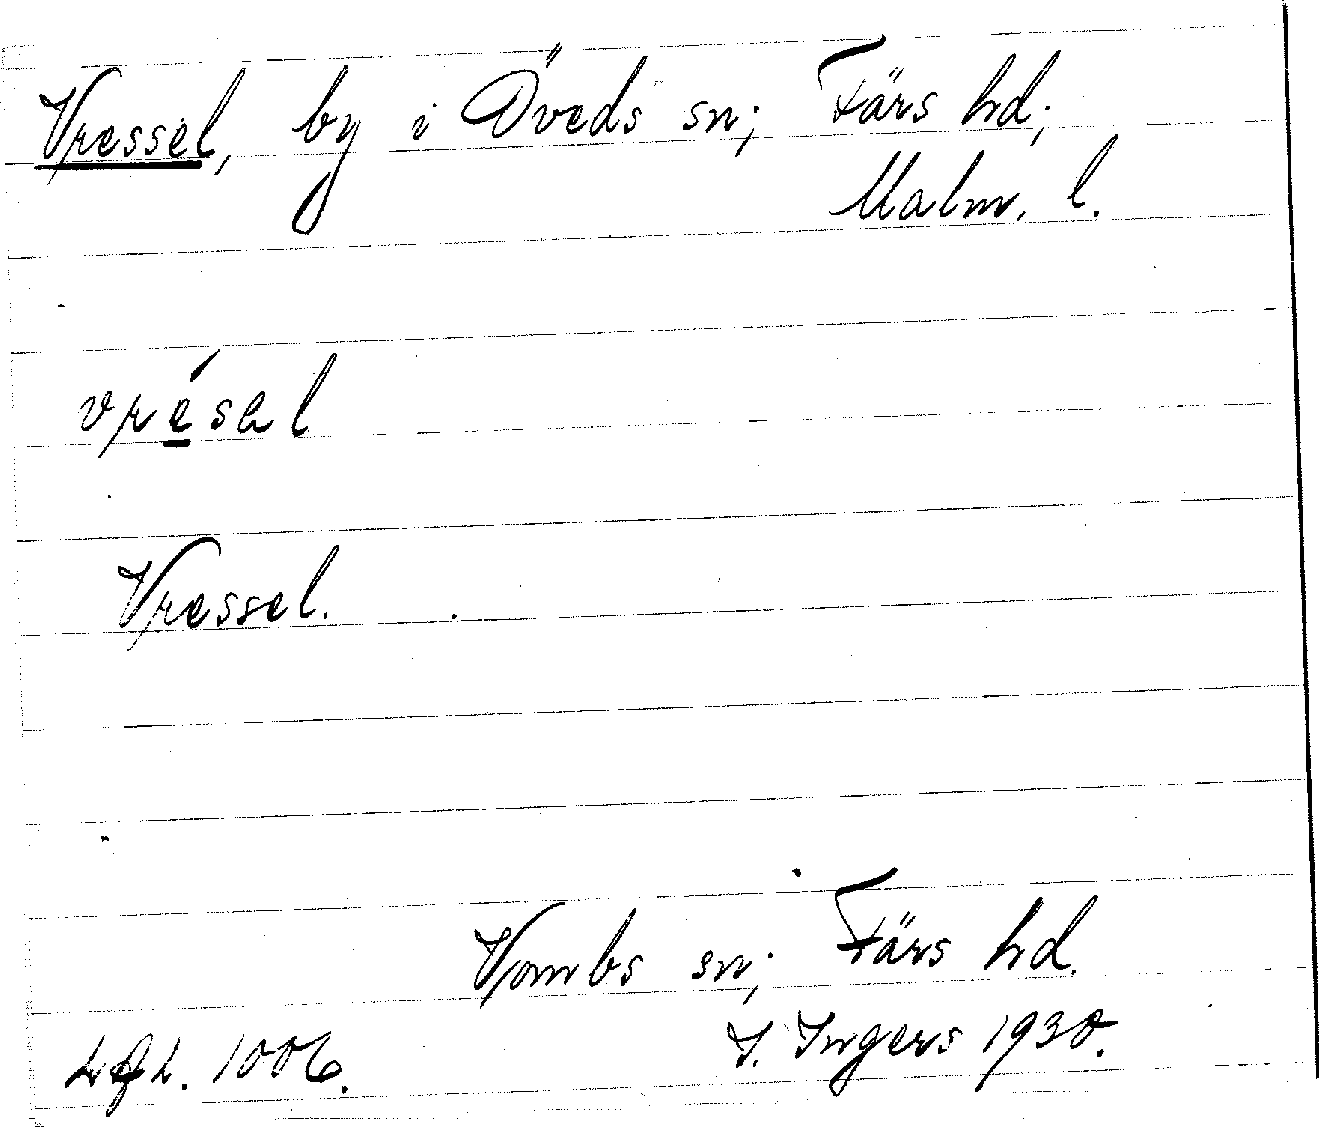 Vressel, by i Öveds sn; Färs hd;
Malm. l.
vrésəl
Vressel.
Vombs sn; Färs hd.
I. Ingers 1930.
1006.